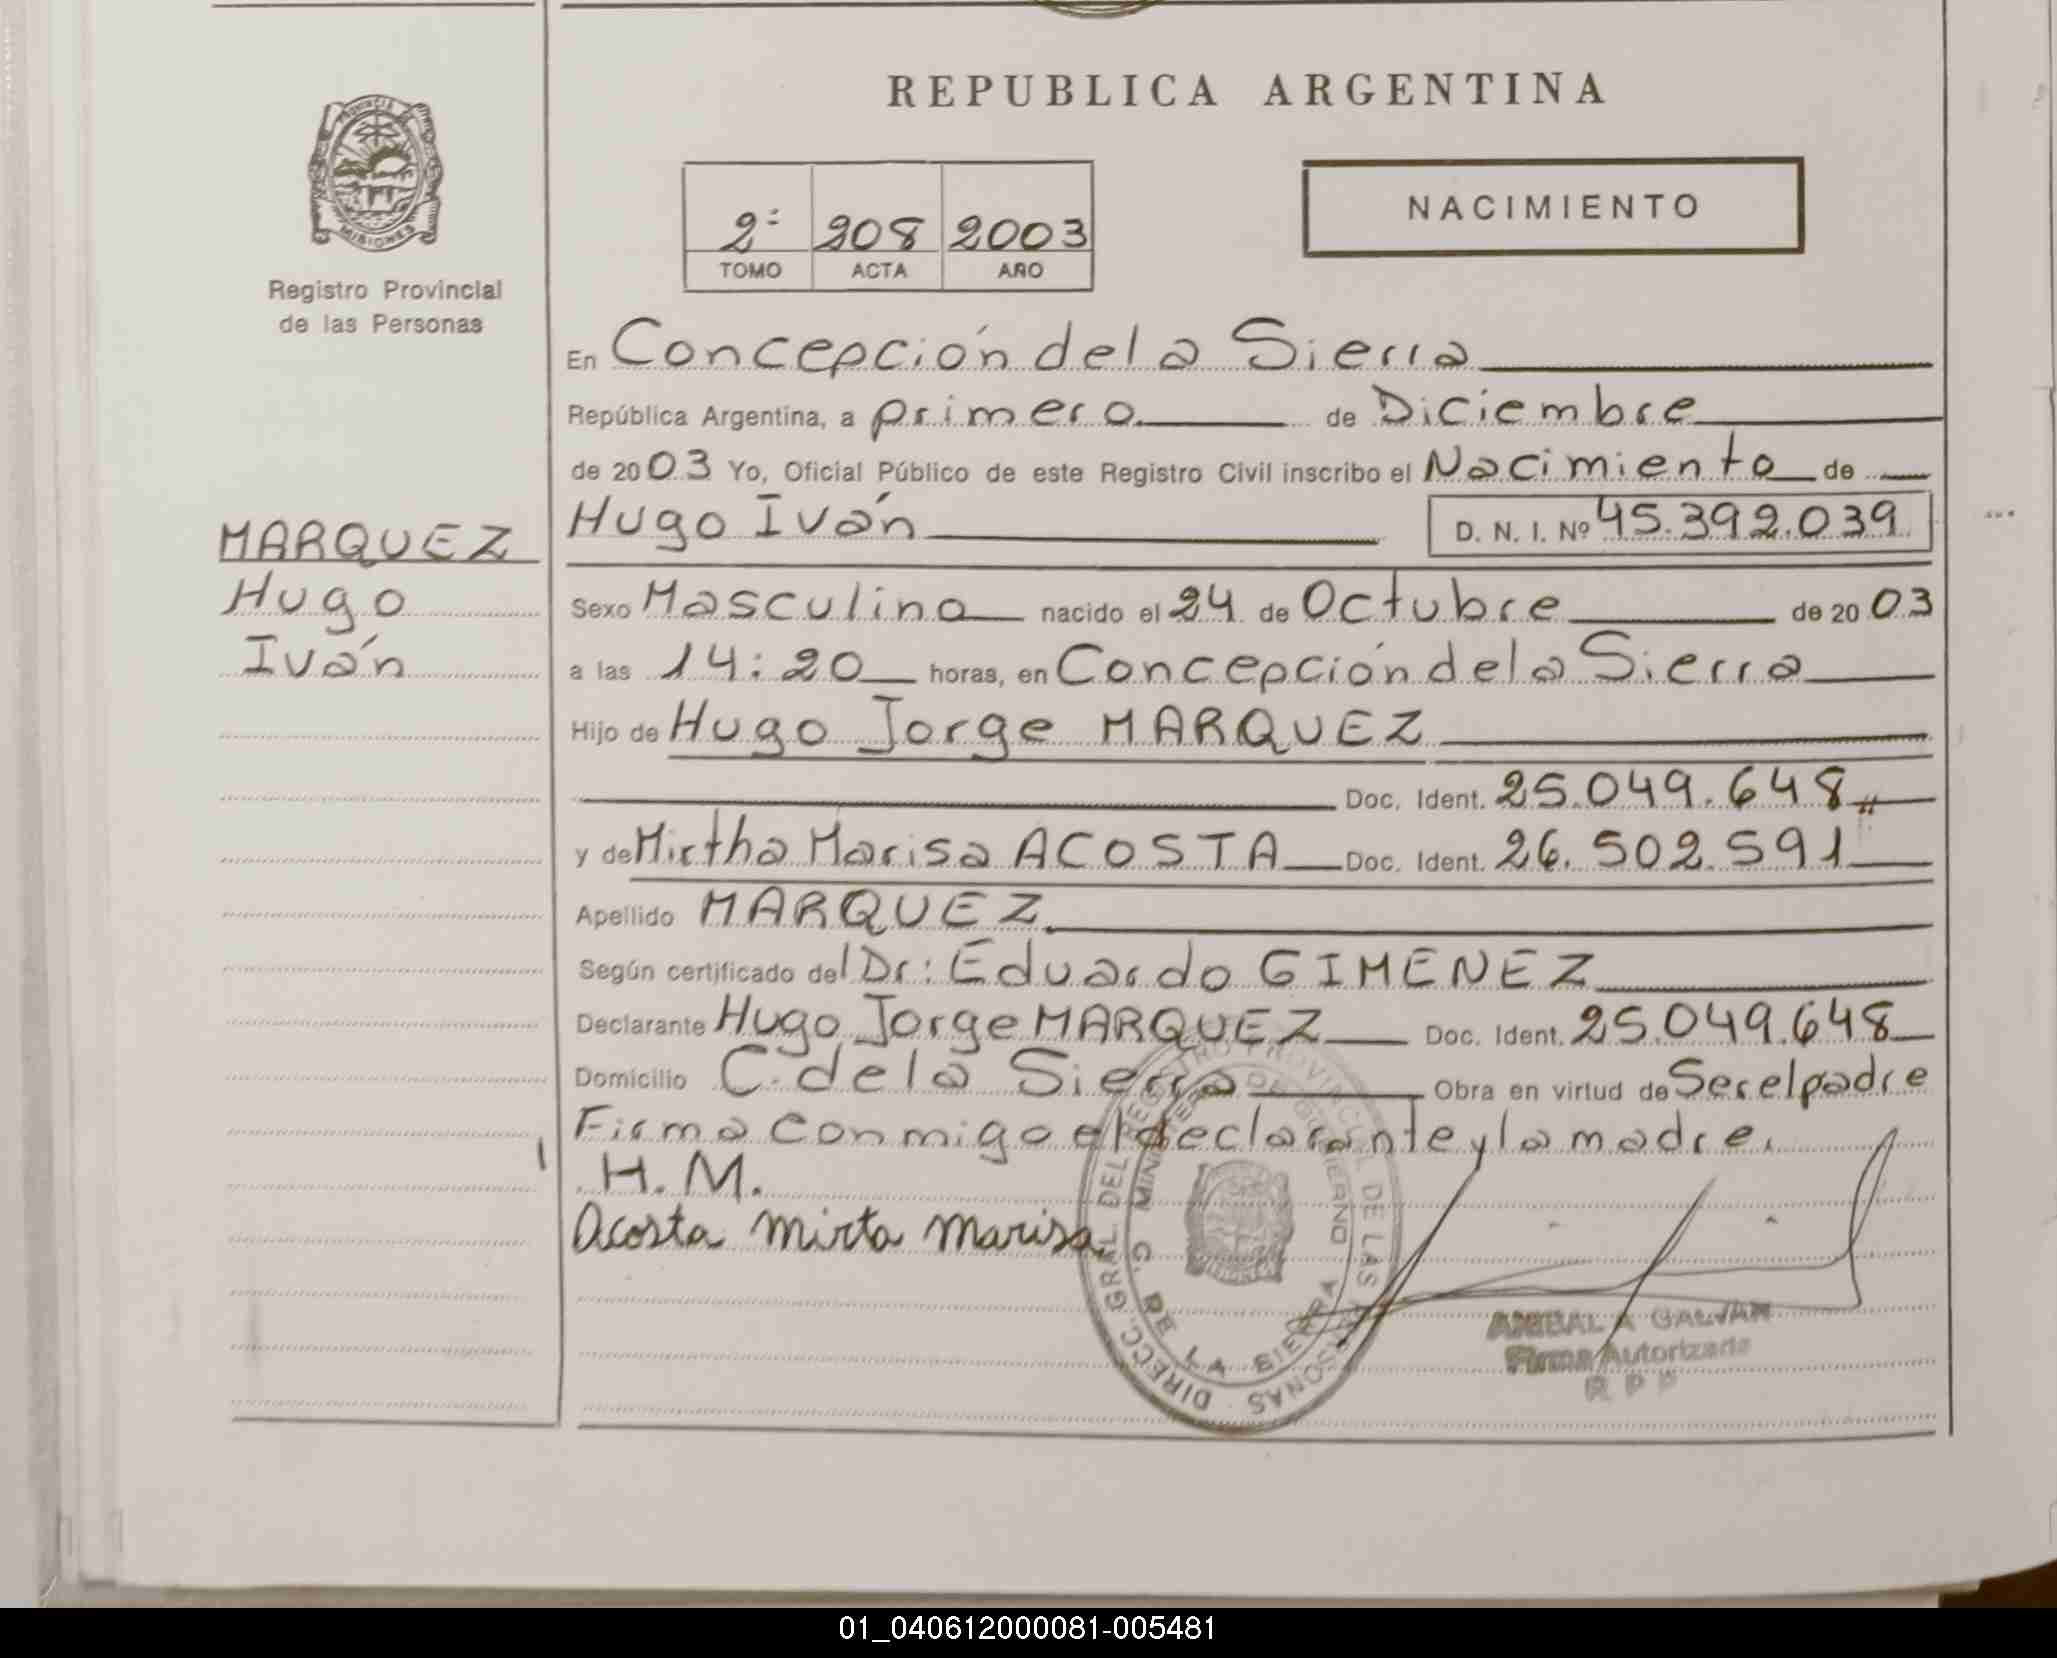 REPUBLICA ARGENTINA
PROVINCIA
MISIONES
Registro Provincial
de las Personas
2º 208 2003
TOMO ACTA AÑO
NACIMIENTO
En Concepción de la Sierra
República Argentina, a primero de Diciembre
de 2003 Yo, Oficial Público de este Registro Civil inscribo el Nacimiento de
Hugo Iván D. N. I. Nº 45.392.039
MARQUEZ
Hugo
Iván
Sexo Masculino nacido el 24 de Octubre de 2003
a las 14:20 horas, en Concepción de la Sierra
Hijo de Hugo Jorge MARQUEZ
Doc. Ident. 25.049.648
y de Mirtha Marisa ACOSTA Doc. Ident. 26.502.591
Apellido MARQUEZ
Según certificado del Dr: Eduardo GIMENEZ
Declarante Hugo Jorge MARQUEZ Doc. Ident. 25.049.648
Domicilio C. de la Sierra Obra en virtud de Ser el padre
Firma conmigo el declarante y la madre.
H. M.
Acosta Mirta Marisa
DIRECC. GRAL. DEL REGISTRO PROVINCIAL DE LAS PERSONAS
C. DE LA SIERRA
ANIBAL A GALVAN
Firma Autorizada
R P P
01_040612000081-005481